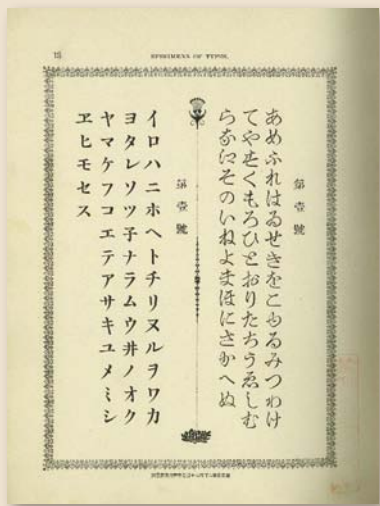 15
SPECIMENS OF TYPES.
第壹號
あめふれはゐせきをこゆるみつわけ
てやすくもろひとおりたちうゑしむ
らなえそのいねよまほにさかへぬ
第壹號
イロハニホヘトチリヌルヲワカ
ヨタレソツ子ナラムウ井ノオク
ヤマケフコエテアサキユメミシ
ヱヒモセス